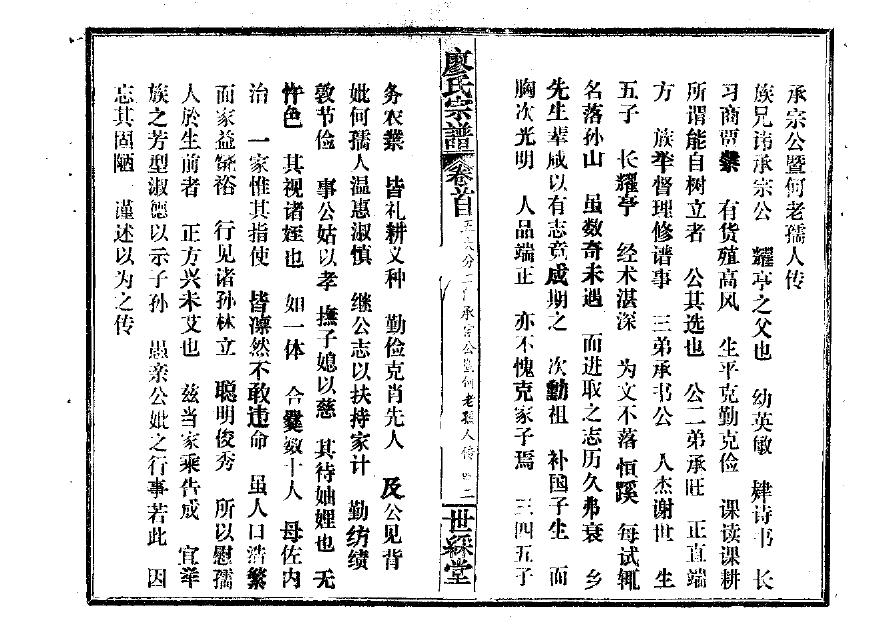 承宗公暨何老孺人传
族兄讳承宗公 耀亭之父也 幼英敏 肄诗书 长
习商贾业 有货殖高风 生平克勤克俭 课读课耕
所谓能自树立者 公其选也 公二弟承旺 正直端
方 族举督理修谱事 三弟承书公 人杰谢世 生
五子 长耀亭 经术湛深 为文不落恒蹊 每试辄
名落孙山 虽数奇未遇 而进取之志历久弗衰 乡
先生辈咸以有志竟成期之 次勳祖 补国子生 而
胸次光明 人品端正 亦不愧克家子焉 三四五子
廖氏宗譜 卷首
五 六分二 承宗公暨何老孺人传 四二
世綵堂
务农业 皆礼耕义种 勤俭克肖先人 及公见背
妣何孺人温惠淑慎 继公志以扶持家计 勤纺绩
敦节俭 事公姑以孝 撫子媳以慈 其待妯娌也 无
忤色 其视诸姪也 如一体 合爨数十人 母佐内
治 一家惟其指使 皆凛然不敢违命 虽人口浩繁
而家益饶裕 行见诸孙林立 聪明俊秀 所以慰孺
人於生前者 正方兴未艾也 兹当家乘告成 宜举
族之芳型淑德以示子孙 愚亲公妣之行事若此 因
忘其固陋 谨述以为之传